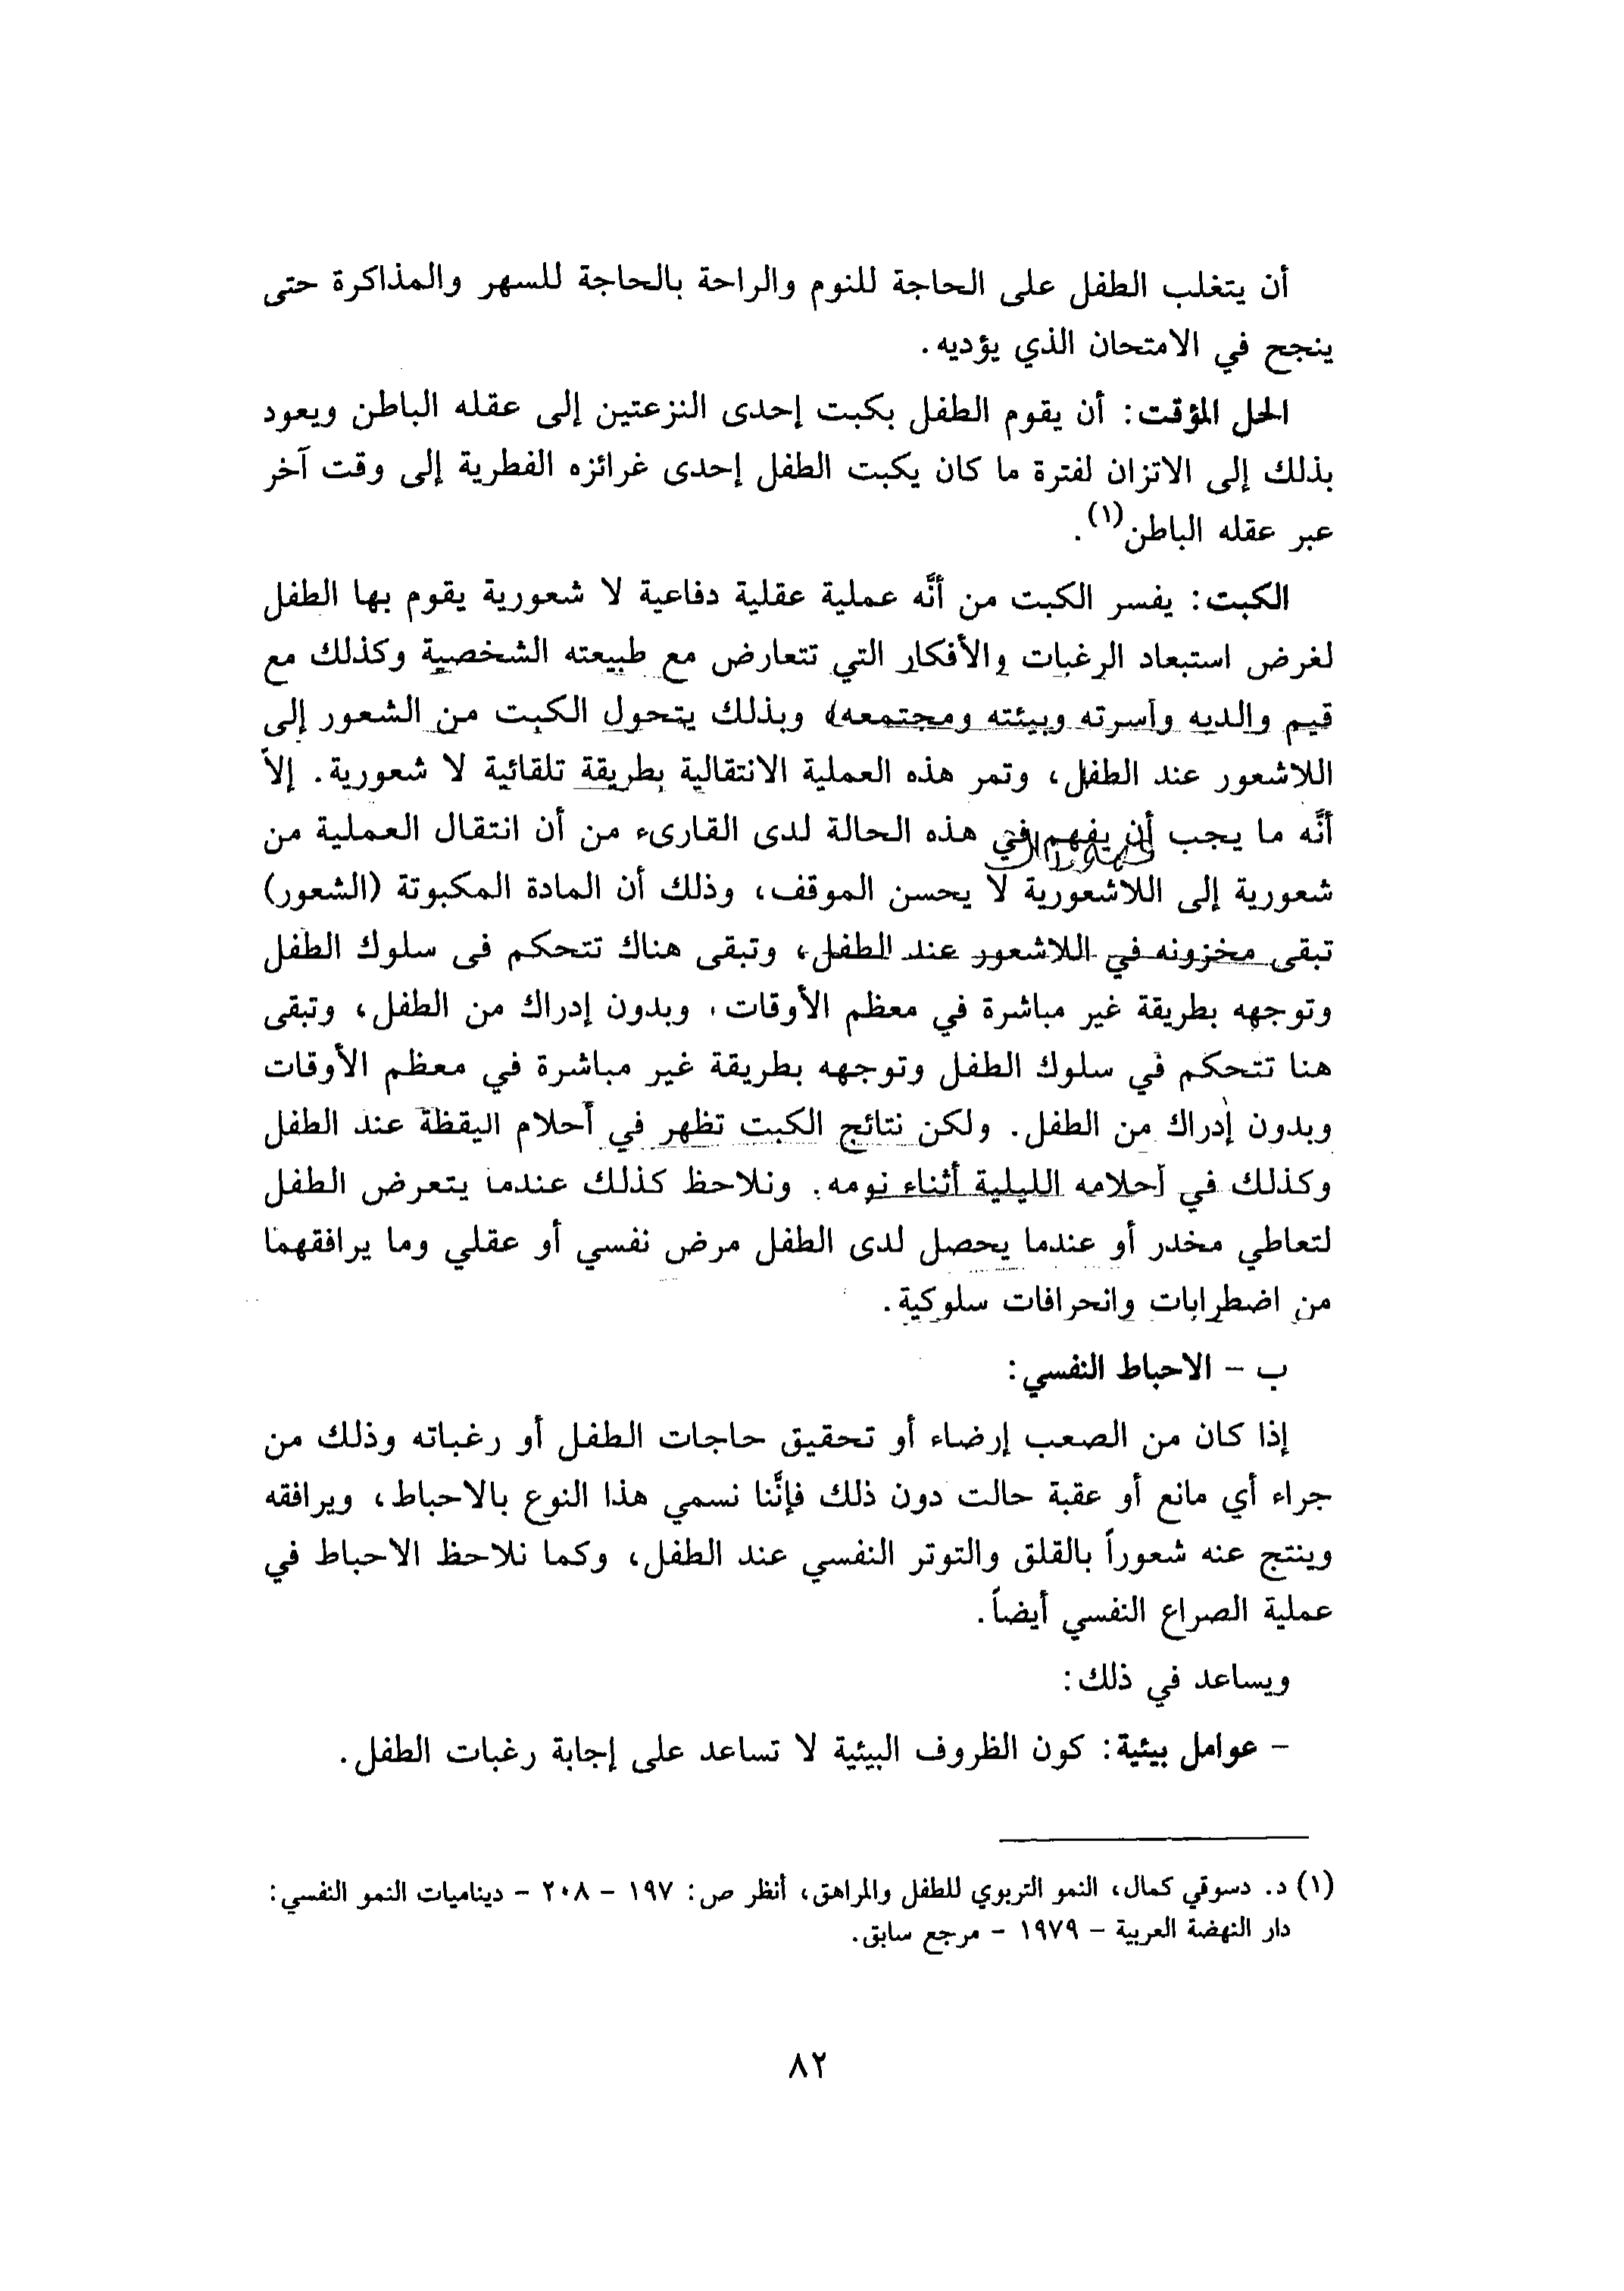 أن يتغلب الطفل على الحاجة للنوم والراحة بالحاجة للسهر والمذاكرة حتى
ينجح في الامتحان الذي يؤديه.
الحل المؤقت: أن يقوم الطفل بكبت إحدى النزعتين إلى عقله الباطن ويعود
بذلك إلى الاتزان لفترة ما كان يكبت الطفل إحدى غرائزه الفطرية إلى وقت آخر
عبر عقله الباطن(١).
الكبت: يفسر الكبت من أنَّه عملية عقلية دفاعية لا شعورية يقوم بها الطفل
لغرض استبعاد الرغبات والأفكار التي تتعارض مع طبيعته الشخصية وكذلك مع
قيم والديه وأسرته وبيئته ومجتمعه) وبذلك يتحول الكبت من الشعور إلى
اللاشعور عند الطفل، وتمر هذه العملية الانتقالية بطريقة تلقائية لا شعورية. إلاّ
أنَّه ما يجب أن يفهم في هذه الحالة لدى القارىء من أن انتقال العملية من
شعورية إلى اللاشعورية لا يحسن الموقف، وذلك أن المادة المكبوتة (الشعور)
تبقى مخزونه في اللاشعور عند الطفل، وتبقى هناك تتحكم فى سلوك الطفل
وتوجهه بطريقة غير مباشرة في معظم الأوقات، وبدون إدراك من الطفل، وتبقى
هنا تتحكم في سلوك الطفل وتوجهه بطريقة غير مباشرة في معظم الأوقات
وبدون إدراك من الطفل. ولكن نتائج الكبت تظهر في أحلام اليقظة عند الطفل
وكذلك في أحلامه الليلية أثناء نومه. ونلاحظ كذلك عندما يتعرض الطفل
لتعاطي مخدر أو عندما يحصل لدى الطفل مرض نفسي أو عقلي وما يرافقهما
من اضطرابات وانحرافات سلوكية.
ب - الاحباط النفسي:
إذا كان من الصعب إرضاء أو تحقيق حاجات الطفل أو رغباته وذلك من
جراء أي مانع أو عقبة حالت دون ذلك فإنَّنا نسمي هذا النوع بالاحباط، ويرافقه
وينتج عنه شعوراً بالقلق والتوتر النفسي عند الطفل، وكما نلاحظ الاحباط في
عملية الصراع النفسي أيضاً.
ويساعد في ذلك:
- عوامل بيئية: كون الظروف البيئية لا تساعد على إجابة رغبات الطفل.
(١) د. دسوقي كمال، النمو التربوي للطفل والمراهق، أنظر ص: ١٩٧ - ٢٠٨ - ديناميات النمو النفسي:
دار النهضة العربية - ١٩٧٩ - مرجع سابق.
٨٢